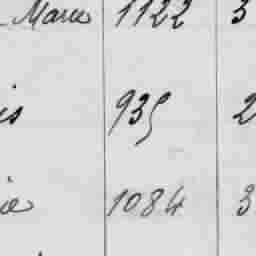 Marie 1122 3
is 935 2
ie 1084 3